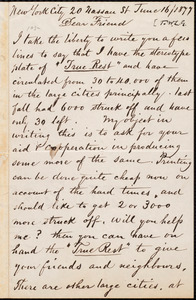 New York City, 20 Nassau St. June 16/1877
Dear Friend
I take the liberty to write you a few
lines to say that I have the stereotype
plate of "True Rest" and have
circulated from 30 to 40,000 of them
in the large cities principally. last
fall had 6000 struck off and now
only 30 left. My object in
writing this is to ask for your
aid & Cooperation in producing
some more of the same. Printing
can be done quite cheap now on
account of the hard times, and
should like to get 2 or 3000
more struck off. Will you help
me? then you can have on
hand the "True Rest" to give
your friends and neighbours.
There are other large cities, at